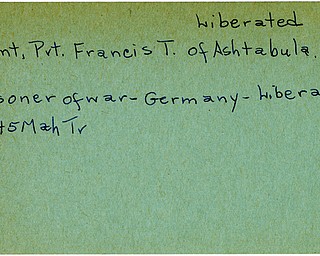 Liberated
nt, Pvt. Francis T. of Ashtabula.
soner of war - Germany - Libera
45 Mah Tr